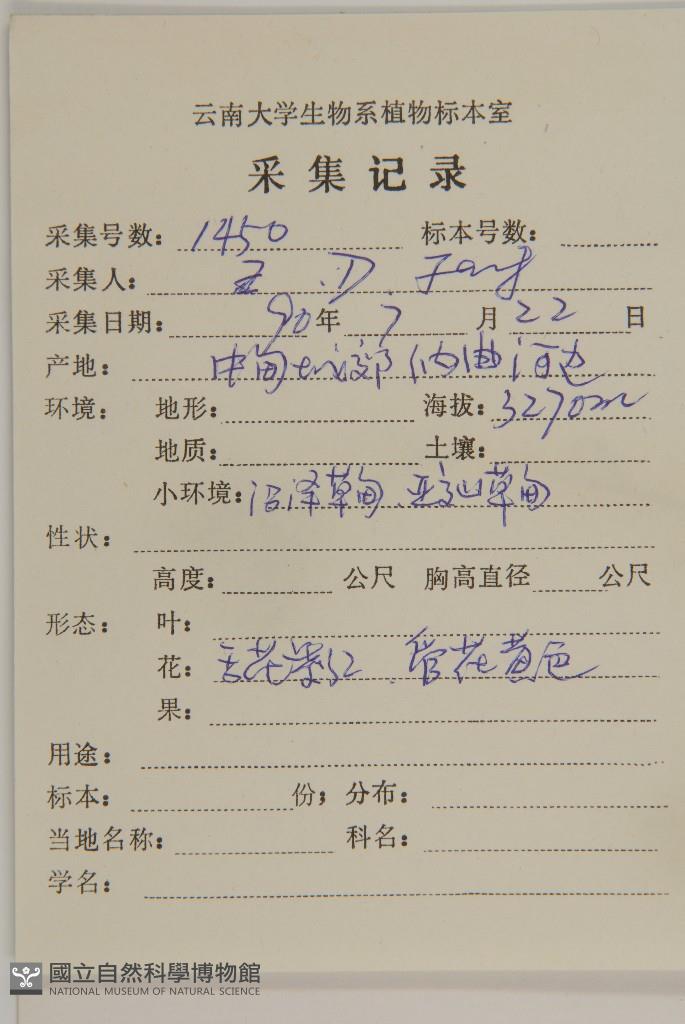 云南大学生物系植物标本室
采集记录
采集号数: 1450 标本号数:
采集人: 王.D.Fang
采集日期: 90年7月22日
产地: 中甸城郊纳曲河边
环境: 地形: 海拔: 3270m
地质: 土壤:
小环境: 沼泽草甸、亚高山草甸
性状:
高度: 公尺 胸高直径 公尺
形态: 叶:
花: 舌花紫红、管花黄色
果:
用途:
标本: 份; 分布:
当地名称: 科名:
学名:
國立自然科學博物館
NATIONAL MUSEUM OF NATURAL SCIENCE